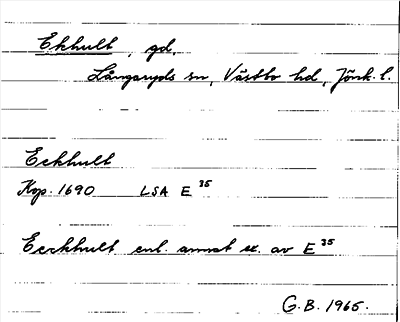 Ekhult, gd,
Långaryds sn, Västbo hd, Jönk. l.
Eckhult
Kop. 1690 LSA E 35
Eeckhult enl. annat ex. av E 35
G.B. 1965.